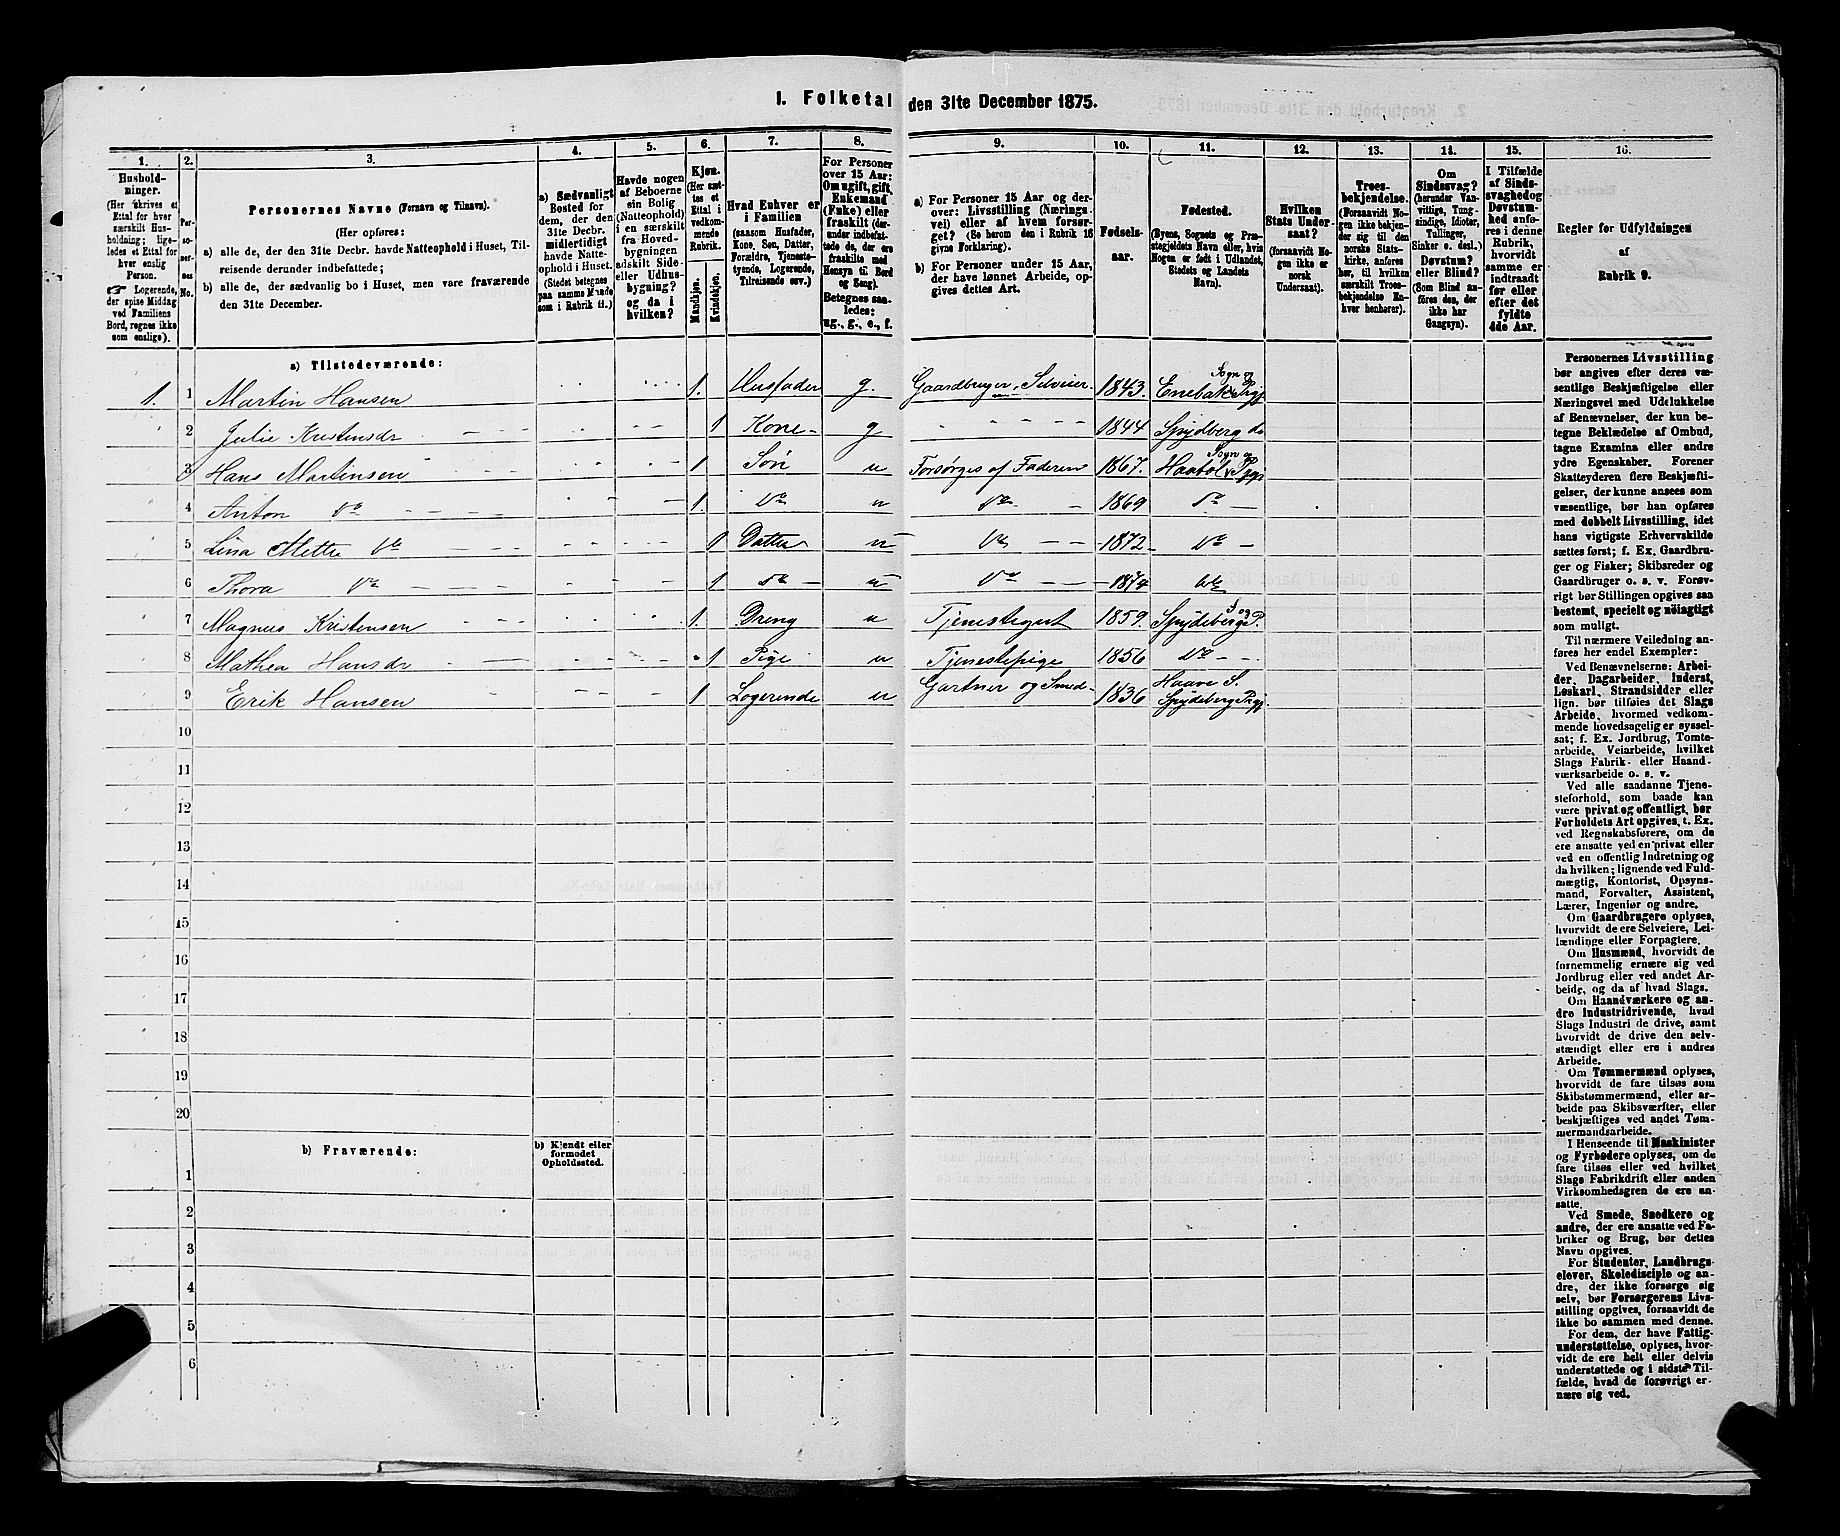 1. Folketal den 31te December 1875.
1.
2.
3.
4.
5.
6.
7.
8.
9.
10.
11.
12.
13.
14.
15.
16.
Hushold-
ninger.
(Her skrives et
Ettal for hver
særskilt Hus-
holdning; lige-
ledes et Ettal
for hver enslig
Person.
☞ Logerende,
der spise Middag
ved Familiens
Bord, regnes ikke
som enslige).
Per-
so-
ner-
nes
No.
Personernes Navne (Fornavn og Tilnavn).
(Her opføres:
a) alle de, der den 31te Decbr. havde Natteophold i Huset, Til-
reisende derunder indbefattede;
b) alle de, der sædvanlig bo i Huset, men vare fraværende
den 31te December.
a) Sædvanligt
Bosted for
dem, der den
31te Decbr.
midlertidigt
havde Natte-
ophold i Huset.
(Stedet betegnes
paa samme Maade
som i Rubrik 11.)
Havde nogen
af Beboerne
sin Bolig
(Natteophold)
i en særskilt
fra Hoved-
bygningen
adskilt Side-
eller Udhus-
bygning?
og da i
hvilken?
Kjøn.
(Her sæt-
tes et
Ettal i
vedkom-
mende
Rubrik.
Mandkjøn.
Kvindekjøn.
Hvad Enhver er
i Familien
(saasom Husfader,
Kone, Søn, Datter,
Forældre, Tjeneste-
tyende, Logerende,
Tilreisende osv.)
For Personer
over 15 Aar:
Om ugift, gift,
Enkemand
(Enke) eller
fraskilt (der-
under indbefat-
tede de, der ere
fraskilte med
Hensyn til Bord
og Seng).
Betegnes saa-
ledes:
ug., g., e., f.
a) For Personer 15 Aar og der-
over: Livsstilling (Nærings-
vei) eller af hvem forsør-
get? (Se herom den i Rubrik 16
givne Forklaring).
b) For Personer under 15 Aar,
der have lønnet Arbeide, op-
gives dettes Art.
Fødsels-
aar.
Fødested.
(Byens, Sognets og Præ-
stegjeldets Navn eller, hvis
Nogen er født i Udlandet,
Stedets og Landets
Navn).
Hvilken
Stats Under-
saat?
(forsaavidt No-
gen ikke er
norsk
Undersaat).
Troes-
bekjendelse.
(Forsaavidt No-
gen ikke bekjen-
der sig til den
norske Stats-
kirke, anføres
her, til hvilken
særskilt Troes-
bekjendelse En-
hver henhører).
Om
Sindssvag?
(herunder Van-
vittige, Tung-
sindige, Idioter,
Tullinger,
Sinker o. desl.)
Døvstum?
eller Blind?
(Som Blind an-
føres den, der
ikke har
Gangsyn).
I Tilfælde
af Sinds-
svaghed og
Døvstum-
hed anfø-
res i denne
Rubrik,
hvorvidt
samme er
indtraadt
før eller
efter det
fyldte
4de Aar.
Regler før Udfyldningen
af
Rubrik 9.
a) Tilstedeværende:
1. 1 Martin Hansen 1. Husfader g. Gaardbruger, Selveier. 1843. Enebak Sogn og Prgj
2 Julie Kristensdr 1 Kone g 1844 Spydberg do
3 Hans Martinsen 1 Søn u Forsørges af Faderen 1867. Haabøl Sogn og Prgj
4 Anton Do 1. Do u Do 1869 Do
5 Lina Mettea Do 1 Datter u Do 1872 Do
6 Thora Do 1 Do u Do 1874 Do
7 Magnus Kristensen 1. Dreng u Tjenestegut 1859. Spydeberg S og P.
8 Mathea Hansdr 1 Pige u Tjenestepige 1856 Do
9 Erik Hansen 1 Logerende u Gartner og Smed 1836 Haave S. Spydeberg Prgj
10
11
12
13
14
15
16
17
18
19
20
b) Fraværende:
b) Kjendt eller
formodet
Opholdssted.
1
2
3
4
5
6
Personernes Livsstilling
bør angives efter deres væ-
sentlige Beskjæftigelse eller
Næringsvei med Udelukkelse
af Benævnelser, der kun be-
tegne Beklædelse af Ombud,
tagne Examina eller andre
ydre Egenskaber. Forener
Skatteyderen flere Beskjæfti-
gelser, der kunne ansees som
væsentlige, bør han opføres
med dobbelt Livsstilling, idet
hans vigtigste Erhvervskilde
sættes først; f. Ex. Gaardbru-
ger og Fisker; Skibsreder og
Gaardbruger o. s. v. Forøv-
rigt bør Stillingen opgives saa
bestemt, specielt og nøiagtigt
som muligt.
Til nærmere Veiledning an-
føres her endel Exempler:
Ved Benævnelserne: Arbei-
der, Dagarbeider, Inderst,
Løskarl, Strandsidder eller
lign. bør tilføies det Slags
Arbeide, hvormed vedkom-
mende hovedsagelig er syssel-
sat; f. Ex. Jordbrug, Tomte-
arbeide, Veiarbeide, hvilket
Slags Fabrik- eller Haand-
værksarbeide o. s. v.
Ved alle saadanne Tjene-
steforhold, som baade kan
være privat og offentligt, bør
Forholdets Art opgives, t. Ex.
ved Regnskabsførere, om de
ere ansatte ved en privat eller
ved en offentlig Indretning og
da hvilken; lignende ved Fuld-
mægtig, Kontorist, Opsyns-
mand, Forvalter, Assistent,
Lærer, Ingeniør og andre.
Om Gaardbrugere oplyses,
hvorvidt de ere Selveiere, Lei-
lændinge eller Forpagtere.
Om Husmænd, hvorvidt de
fornemmelig ernære sig ved
Jordbrug eller ved andet Ar-
beide, og da af hvad Slags.
Om Haandværkere og an-
dre Industridrivende, hvad
Slags Industri de drive, samt
hvorvidt de drive den selv-
stændigt eller ere i andres
Arbeide.
Om Tømmermænd oplyses,
hvorvidt de fare tilsøs som
Skibstømmermænd, eller ar-
beide paa Skibsværfter, eller
beskjæftiges ved andet Tøm-
mermandsarbeide.
I Henseende til Maskinister
og Fyrbødere oplyses, om de
fare tilsøs eller ved hvilket
Slags Fabrikdrift eller anden
Virksomhedsgren de ere an-
satte.
Ved Smede, Snedkere og
andre, der ere ansatte ved Fa-
briker og Brug, bør dettes
Navn opgives.
For Studenter, Landbrugs-
elever, Skoledisciple og an-
dre, der ikke forsørge sig
selv, bør Forsørgerens Livs-
stilling opgives, forsaavidt de
ikke bo sammen med denne.
For dem, der have Fattig-
understøttelse, oplyses, hvor-
vidt de ere helt eller delvis
understøttede og i sidste Til-
fælde, hvad de forøvrigt er-
nære sig ved.